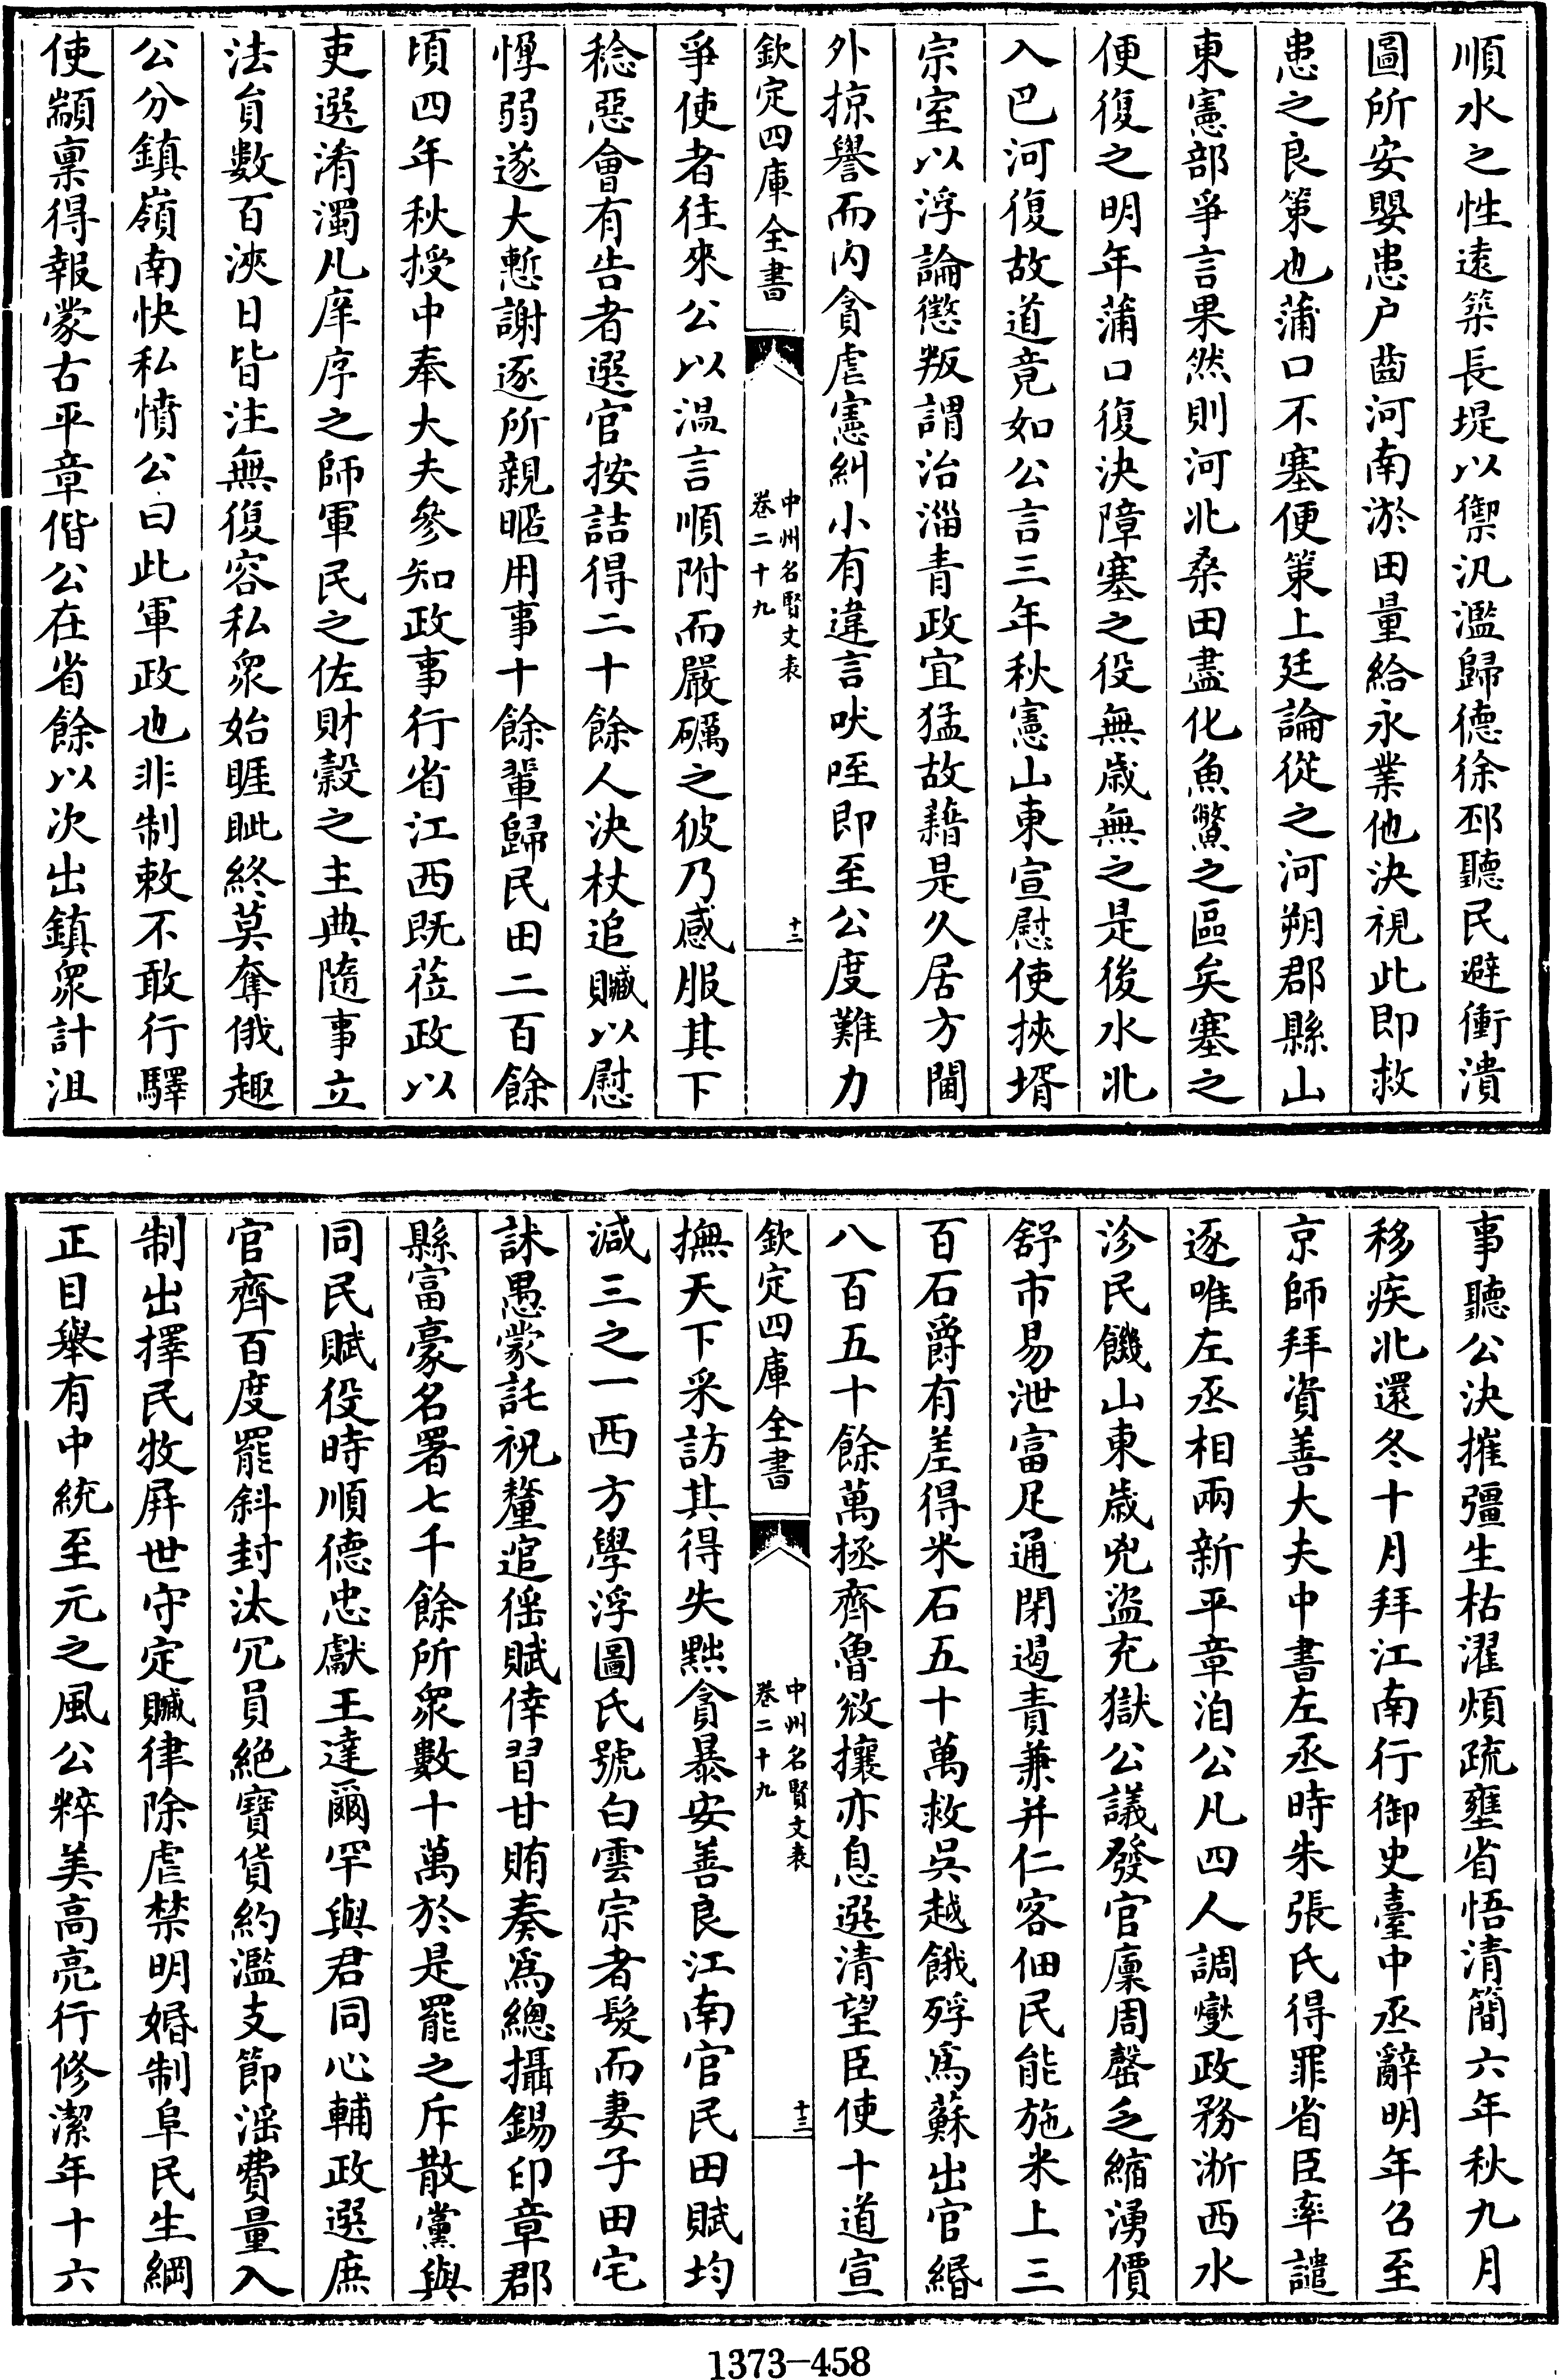 順水之性遠築長堤以禦汎濫歸德徐邳聽民避衝潰
圖所安嬰患户齒河南淤田量給永業他決視此即救
患之良策也蒲口不塞便策上廷論從之河朔郡縣山
東憲部爭言果然則河北桑田盡化魚鱉之區矣塞之
便復之明年蒲口復決障塞之役無歲無之是後水北
入巴河復故道竟如公言三年秋憲山東宣慰使挾壻
宗室以浮論懲叛謂治淄青政宜猛故藉是久居方閫
外掠譽而内貪虐憲糾小有違言吠咥即至公度難力
欽定四庫全書
中州名賢文表
卷二十九
十二
爭使者往來公以温言順附而嚴礪之彼乃感服其下
稔惡會有告者選官按詰得二十餘人決杖追贓以慰
惸弱遂大慙謝逐所親暱用事十餘輩歸民田二百餘
頃四年秋授中奉大夫參知政事行省江西既莅政以
吏選淆濁凡庠序之師軍民之佐財穀之主典隨事立
法員數百浹日皆注無復容私衆始睚眦終莫奪俄趣
公分鎮嶺南快私憤公曰此軍政也非制敕不敢行驛
使顓稟得報蒙古平章偕公在省餘以次出鎮衆計沮
事聽公決摧彊生枯濯煩疏壅省悟清簡六年秋九月
移疾北還冬十月拜江南行御史臺中丞辭明年召至
京師拜資善大夫中書左丞時朱張氏得罪省臣率譴
逐唯左丞相兩新平章洎公凡四人調燮政務浙西水
沴民饑山東歲兇盜充獄公議發官廩周罄乏縮湧價
舒市易泄富足通閉遏責兼并仁客佃民能施米上三
百石爵有差得米石五十萬救吳越餓殍爲蘇出官緡
八百五十餘萬拯齊魯敓攘亦息選清望臣使十道宣
欽定四庫全書
中州名賢文表
卷二十九
十三
撫天下采訪其得失黜貪暴安善良江南官民田賦均
減三之一西方學浮圖氏號白雲宗者髮而妻子田宅
訹愚蒙託祝釐逭徭賦倖習甘賄奏爲總攝錫印章郡
縣富豪名署七千餘所衆數十萬於是罷之斥散黨與
同民賦役時順德忠獻王達爾罕與君同心輔政選庶
官齊百度罷斜封汰冗員絶寶貨約濫支節滛費量入
制出擇民牧屛世守定贓律除虐禁明婚制阜民生綱
正目舉有中統至元之風公粹美高亮行修潔年十六
1373-458